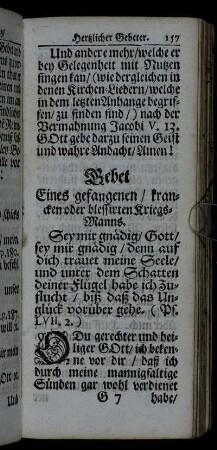 Hertzlicher Gebeter. 157
Und andere mehr/ welche er
bey Gelegenheit mit Nutzen
singen kan/ (wie dergleichen in
denen Kirchen-Liedern/ welche
in dem letzten Anhange begrif-
fen/ zu finden sind/) nach der
Vermahnung Jacobi V. 13.
GOtt gebe darzu seinen Geist
und wahre Andacht/ Amen!
Gebet
Eines gefangenen/ kran-
cken oder blessirten Kriegs-
Manns.
Sey mir gnädig/ Gott/
sey mir gnädig/ denn auf
dich trauet meine Seele/
und unter dem Schatten
deiner Flügel habe ich Zu-
flucht/ biß daß das Un-
glück vorüber gehe. (Ps.
LVII, 2.)
O Du gerechter und hei-
liger GOtt/ ich beken-
ne vor dir/ daß ich
durch meine mannigfaltige
Sünden gar wohl verdienet
G 7 habe/